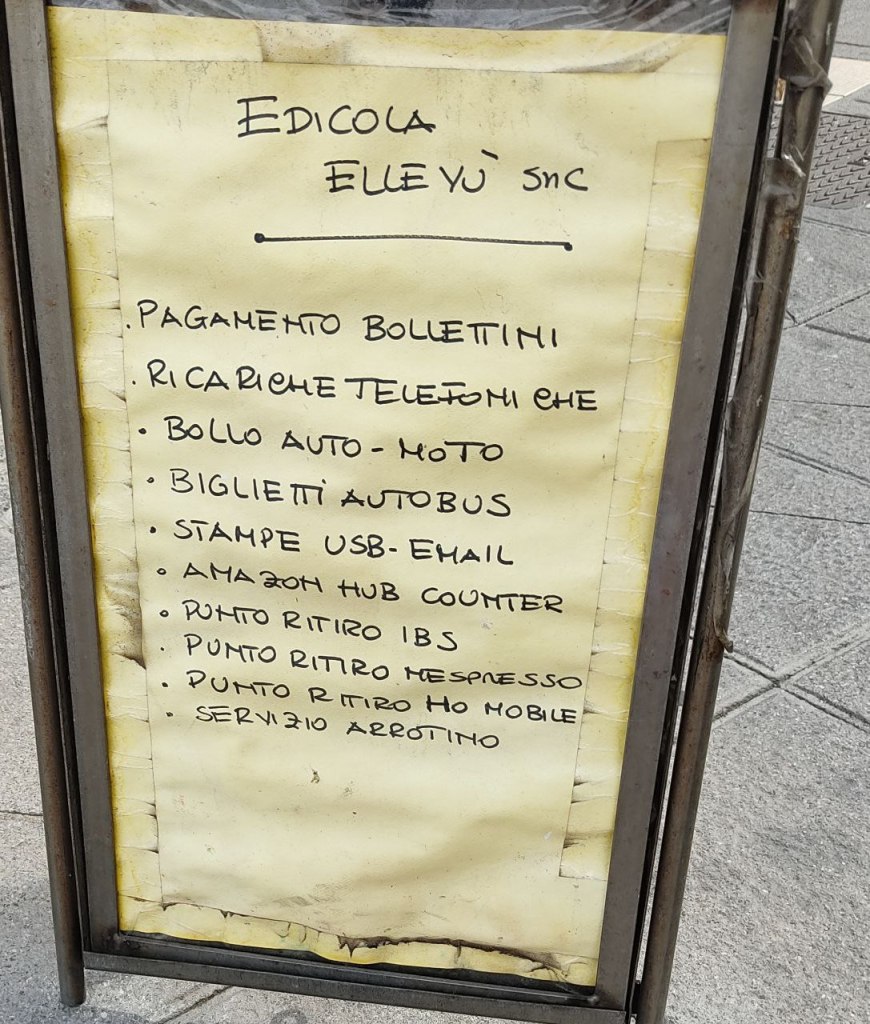 EDICOLA
ELLEVÙ snc
. PAGAMENTO BOLLETTINI
. RICARICHE TELEFONICHE
• BOLLO AUTO - MOTO
• BIGLIETTI AUTOBUS
• STAMPE USB - EMAIL
• AMAZON HUB COUNTER
• PUNTO RITIRO IBS
. PUNTO RITIRO NESPRESSO
• PUNTO RITIRO HO MOBILE
• SERVIZIO ARROTINO